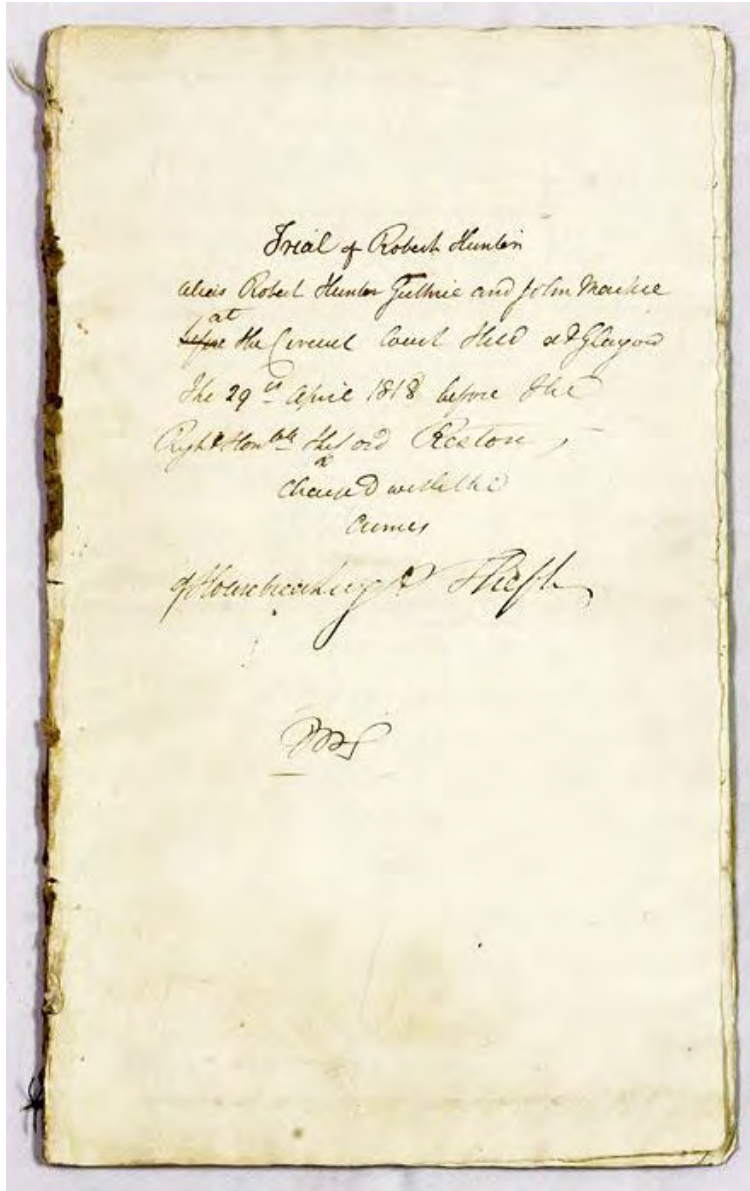 Trial of Robert Hunter
alias Robert Hunter Guthrie and John Mackie
at
before the Circuit Court Held at Glasgow
the 29th April 1818 before the
Right Honble the Lord Reston,
Charged with the
Crimes
of Housebreaking & Theft